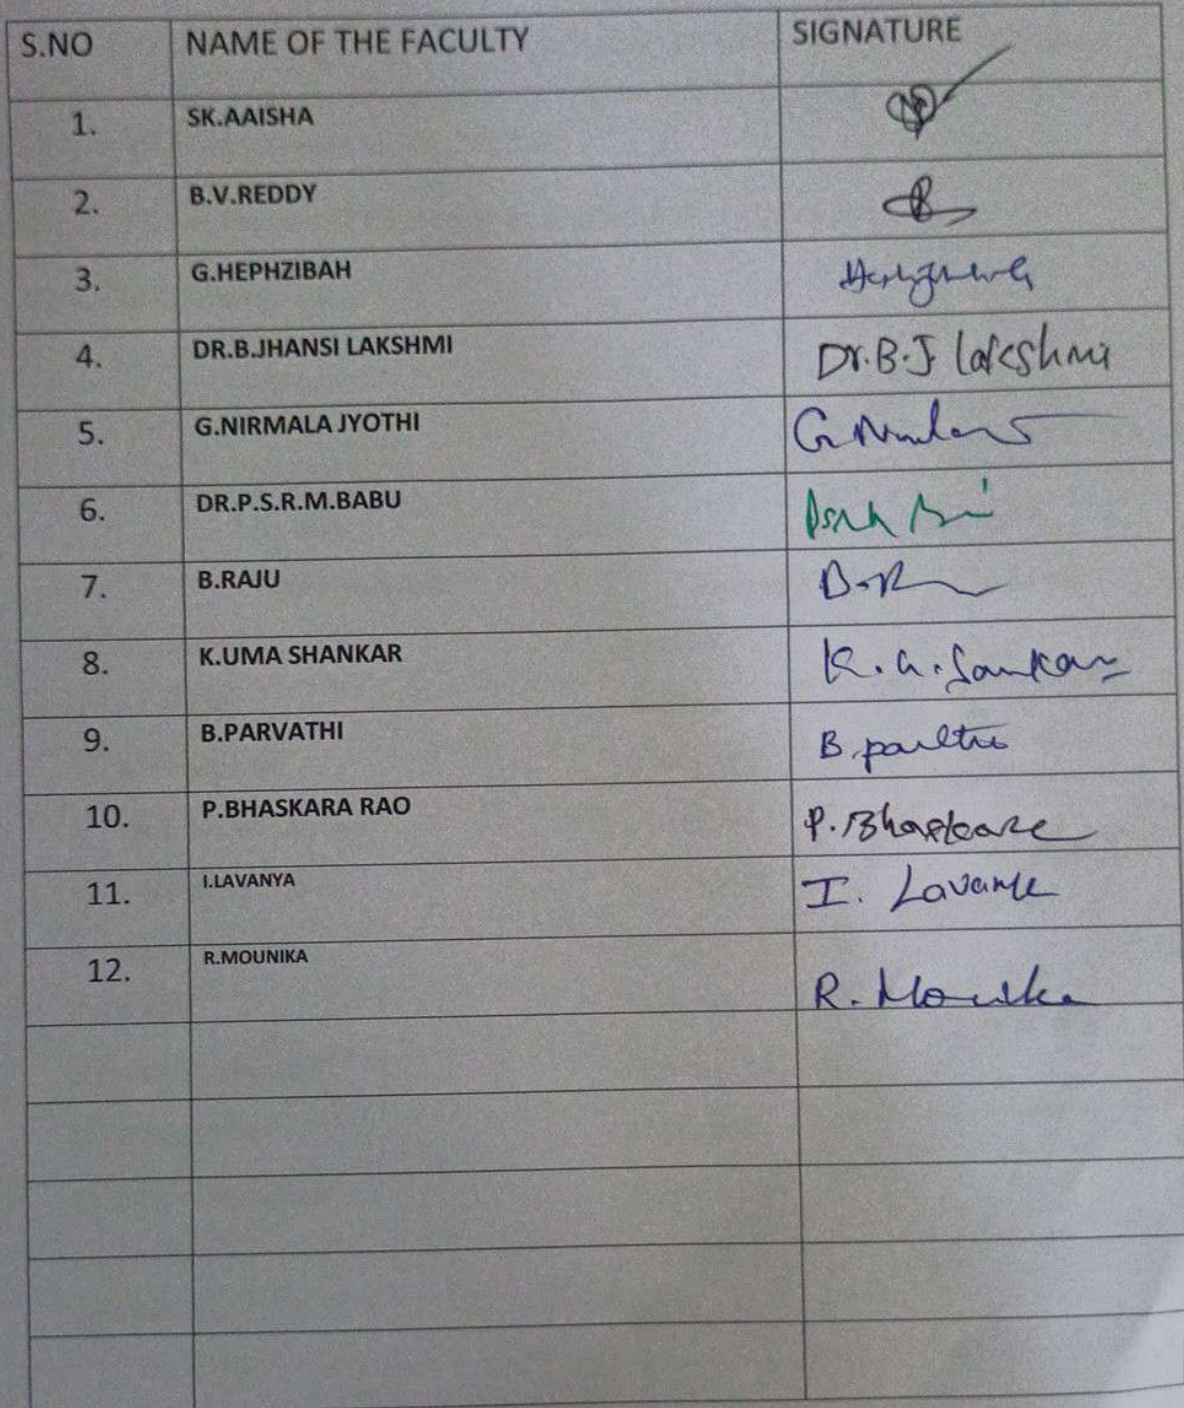 S.NO NAME OF THE FACULTY SIGNATURE
1. SK.AAISHA
2. B.V.REDDY
3. G.HEPHZIBAH
4. DR.B.JHANSI LAKSHMI Dr.B.J Lakshmi
5. G.NIRMALA JYOTHI
6. DR.P.S.R.M.BABU
7. B.RAJU
8. K.UMA SHANKAR K.U.Sankar
9. B.PARVATHI
10. P.BHASKARA RAO P.Bhaskara
11. I.LAVANYA I. Lavanya
12. R.MOUNIKA R. Mounika